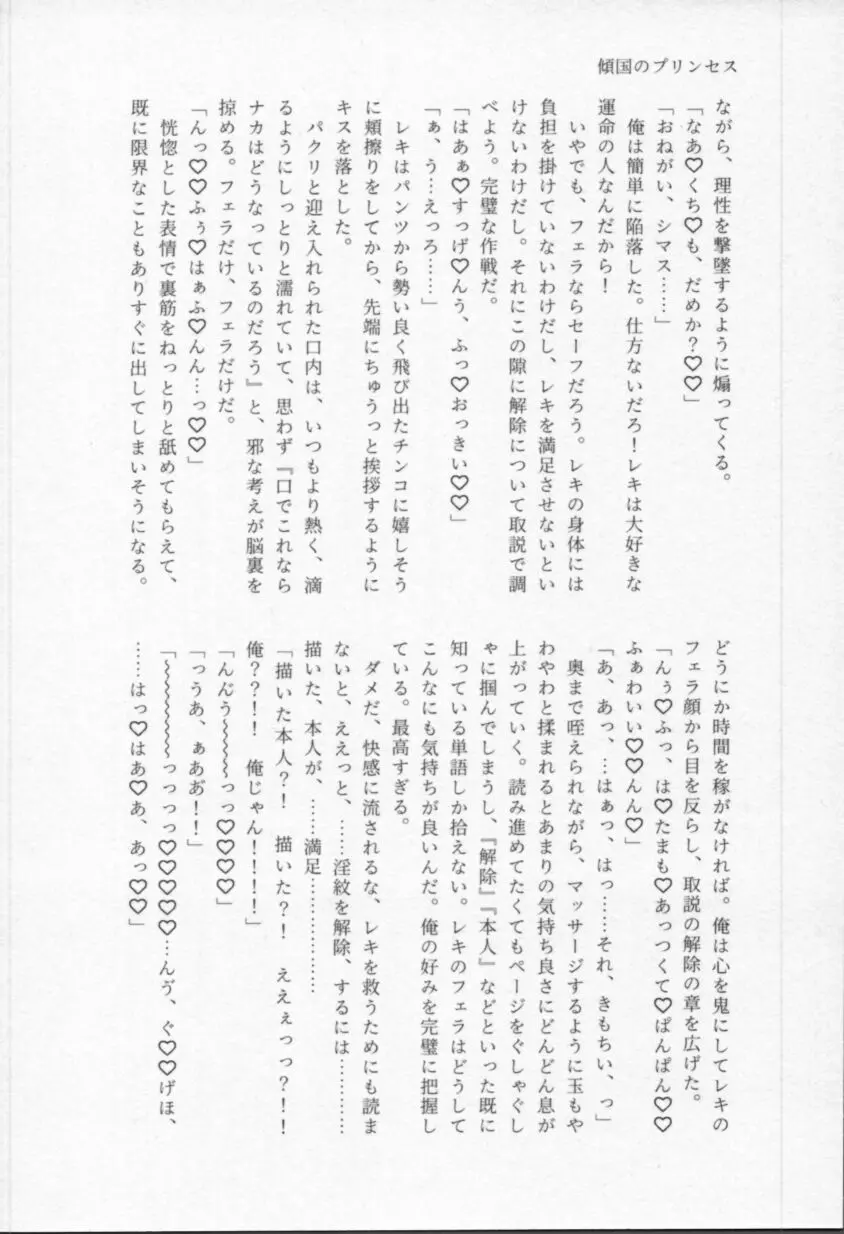 傾国のプリンセス
ながら、理性を撃墜するように煽ってくる。
「なあ♡くち♡も、だめか?♡♡」
「おねがい、シマス……」
俺は簡単に陥落した。仕方ないだろ!レキは大好きな
運命の人なんだから!
いやでも、フェラならセーフだろう。レキの身体には
負担を掛けていないわけだし、レキを満足させないとい
けないわけだし。それにこの隙に解除について取説で調
べよう。完璧な作戦だ。
「はあぁ♡すっげ♡んう、ふっ♡おっきい♡♡」
「ぁ、う…えっろ……」
レキはパンツから勢い良く飛び出たチンコに嬉しそう
に頬擦りをしてから、先端にちゅうっと挨拶するように
キスを落とした。
パクリと迎え入れられた口内は、いつもより熱く、滴
るようにしっとりと濡れていて、思わず『口でこれなら
ナカはどうなっているのだろう』と、邪な考えが脳裏を
掠める。フェラだけ、フェラだけだ。
「んっ♡♡ふぅ♡はぁふ♡んん…っ♡♡」
恍惚とした表情で裏筋をねっとりと舐めてもらえて、
既に限界なこともありすぐに出してしまいそうになる。
どうにか時間を稼がなければ。俺は心を鬼にしてレキの
フェラ顔から目を反らし、取説の解除の章を広げた。
「んぅ♡ふっ、は♡たまも♡あっつくて♡ぱんぱん♡♡
ふぁわいい♡♡んん♡」
「あ、あっ、…はぁっ、はっ……それ、きもちい、っ」
奥まで咥えられながら、マッサージするように玉もや
わやわと揉まれるとあまりの気持ち良さにどんどん息が
上がっていく。読み進めてたくてもページをぐしゃぐし
ゃに掴んでしまうし、『解除』『本人』などといった既に
知っている単語しか拾えない。レキのフェラはどうして
こんなにも気持ちが良いんだ。俺の好みを完璧に把握し
ている。最高すぎる。
ダメだ、快感に流されるな、レキを救うためにも読ま
ないと、ええっと、……淫紋を解除、するには…………
描いた、本人が、……満足………………
「描いた本人?! 描いた?! ええぇっっ?!!
俺??!! 俺じゃん!!!!」
「んゔう〜〜〜〜っっ♡♡♡♡」
「っうあ、ぁあぁ゙!!」
「〜〜〜〜〜〜っっっっ♡♡♡♡♡…んゔ、ぐ♡♡げほ、
……はっ♡はあ♡あ、あっ♡♡」